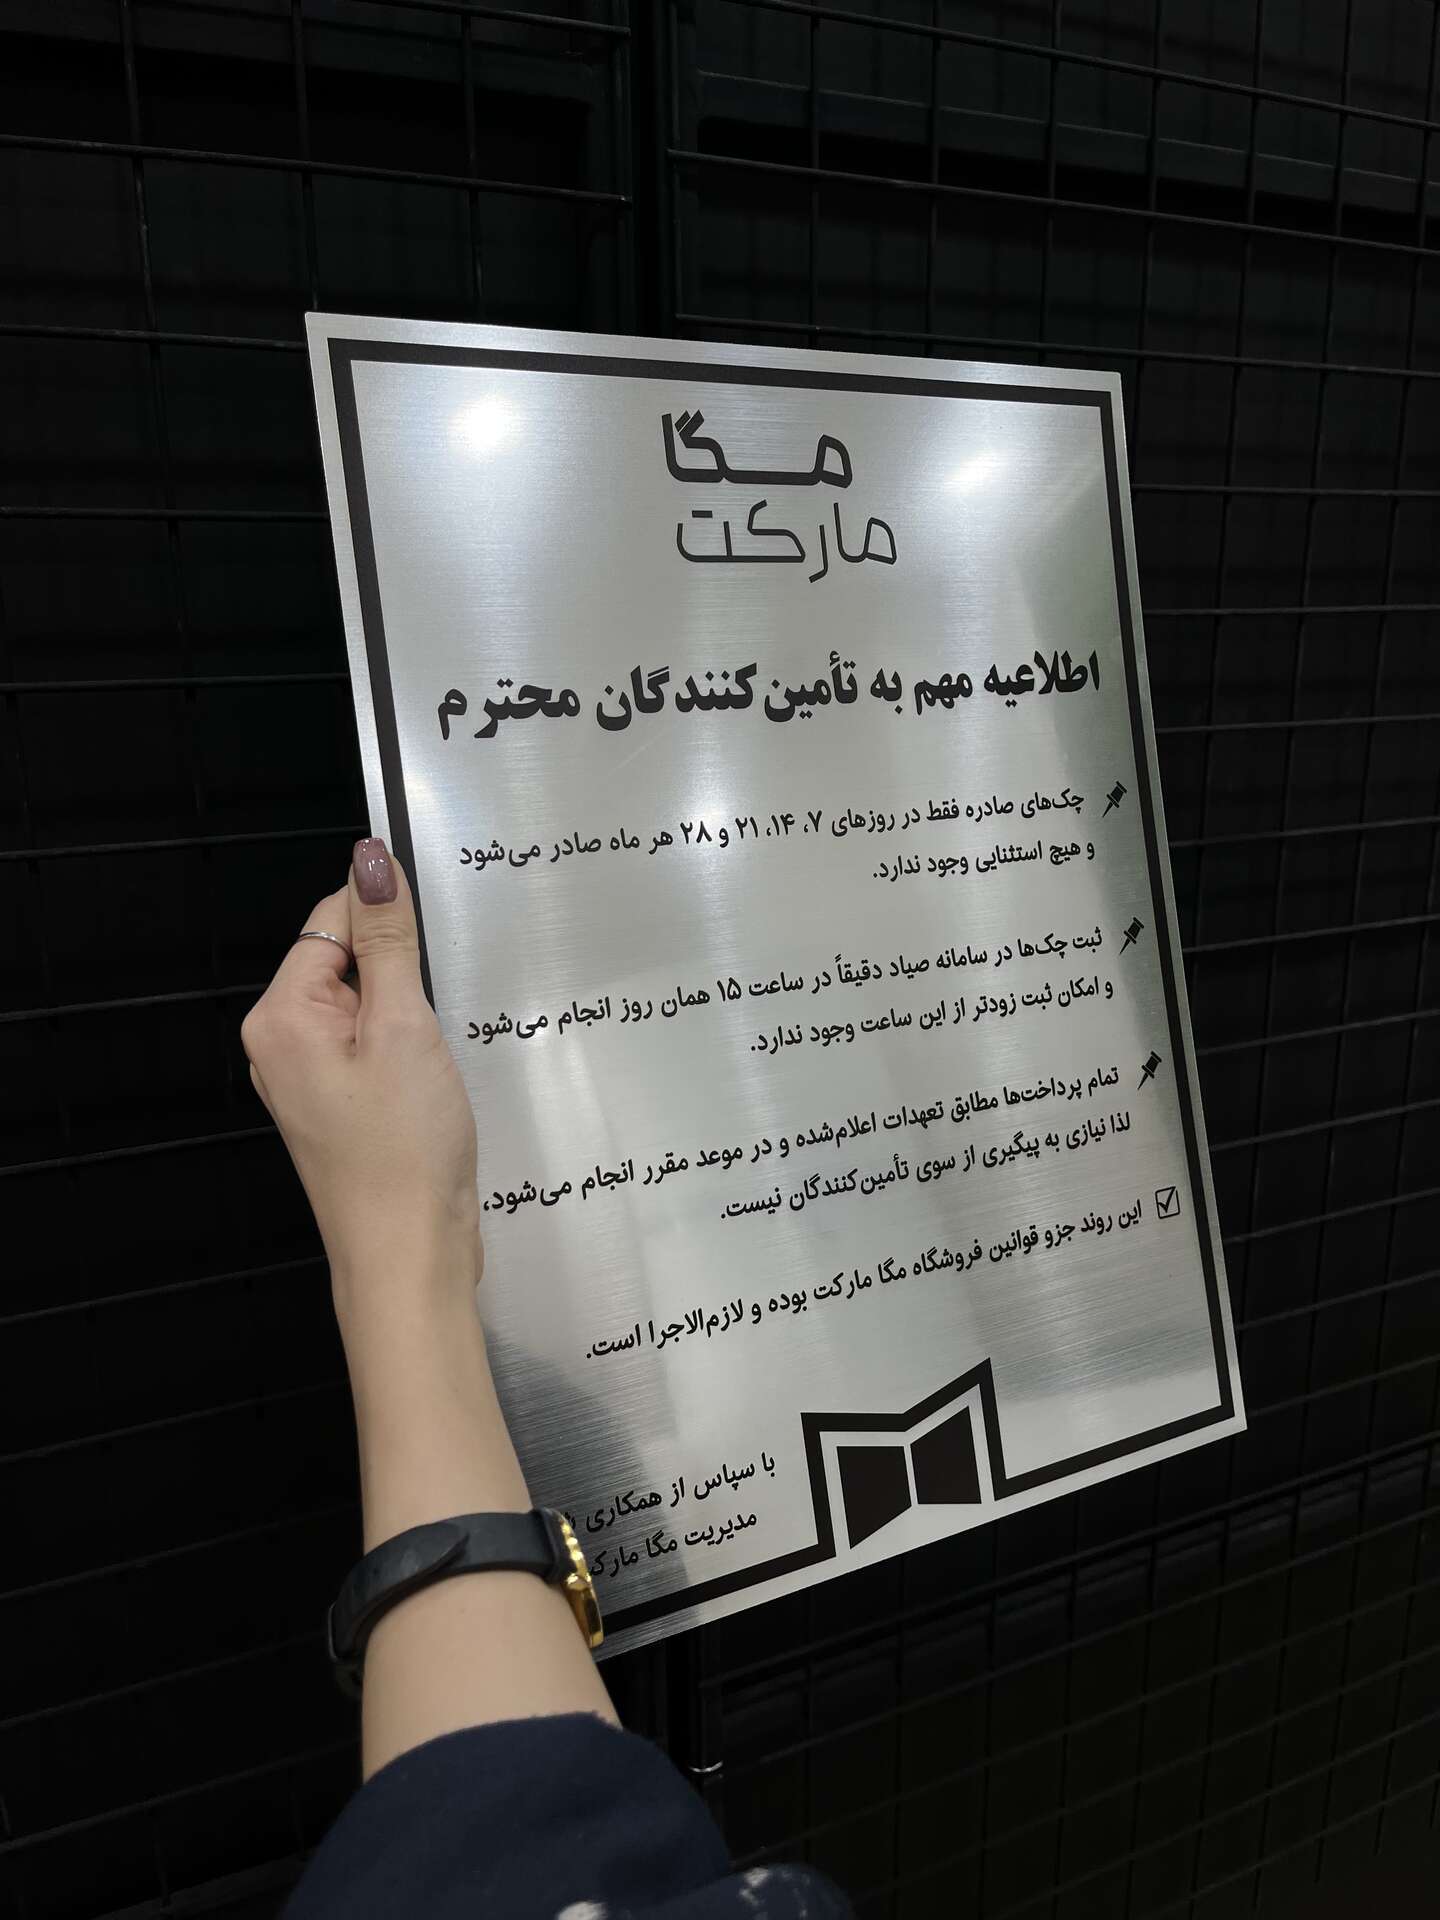 مگا
مارکت
اطلاعیه مهم به تأمین‌کنندگان محترم
چک‌های صادره فقط در روزهای ۷، ۱۴، ۲۱ و ۲۸ هر ماه صادر می‌شود
و هیچ استثنایی وجود ندارد.
ثبت چک‌ها در سامانه صیاد دقیقاً در ساعت ۱۵ همان روز انجام می‌شود
و امکان ثبت زودتر از این ساعت وجود ندارد.
تمام پرداخت‌ها مطابق تعهدات اعلام‌شده و در موعد مقرر انجام می‌شود،
لذا نیازی به پیگیری از سوی تأمین‌کنندگان نیست.
این روند جزو قوانین فروشگاه مگا مارکت بوده و لازم‌الاجرا است.
با سپاس از همکاری
مدیریت مگا